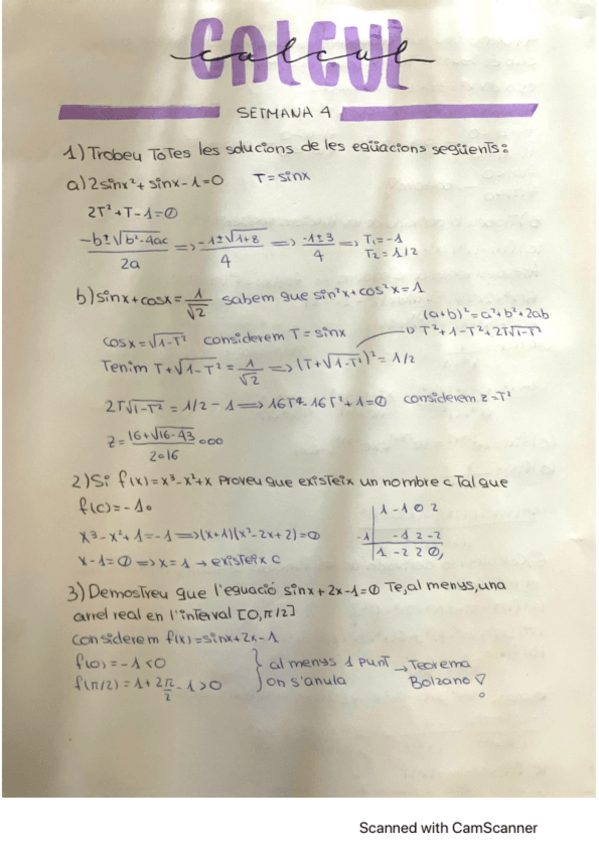 CALCUL
calcul
SETMANA 4
1) Trobeu TOTES les solucions de les eqüacions següents:
a) 2sinx²+sinx-1=0 T=sinx
2T²+T-1=0
-b±√b²-4ac / 2a => -1±√1+8 / 4 => -1±3 / 4 => T₁=-1 T₂=1/2
b) sinx+cosx=1/√2 sabem que sin²x+cos²x=1
(a+b)²=a²+b²+2ab
cosx=√1-T² considerem T=sinx
T²+1-T²+2T√1-T²
Tenim T+√1-T²=1/√2 => (T+√1-T²)²=1/2
2T√1-T²=1/2-1 => 16T⁴-16T²+1=0 considerem z=T²
z=16+√16-43 / 2·16 ...
2) Si f(x)=x³-x²+x proveu que existeix un nombre c tal que
f(c)=-1.
x³-x²+1=-1 => (x+1)(x²-2x+2)=0
x-1=0 => x=1 → existeix c
1 -1 0 2
-1 -1 2 -2
1 -2 2 0,
3) Demostreu que l'equació sinx+2x-1=0 Te, al menys, una
arrel real en l'interval [0,π/2]
Considerem f(x)=sinx+2x-1
f(0)=-1<0 } al menys 1 punt → Teorema
f(π/2)=1+2π/2-1>0 on s'anula Bolzano
Scanned with CamScanner